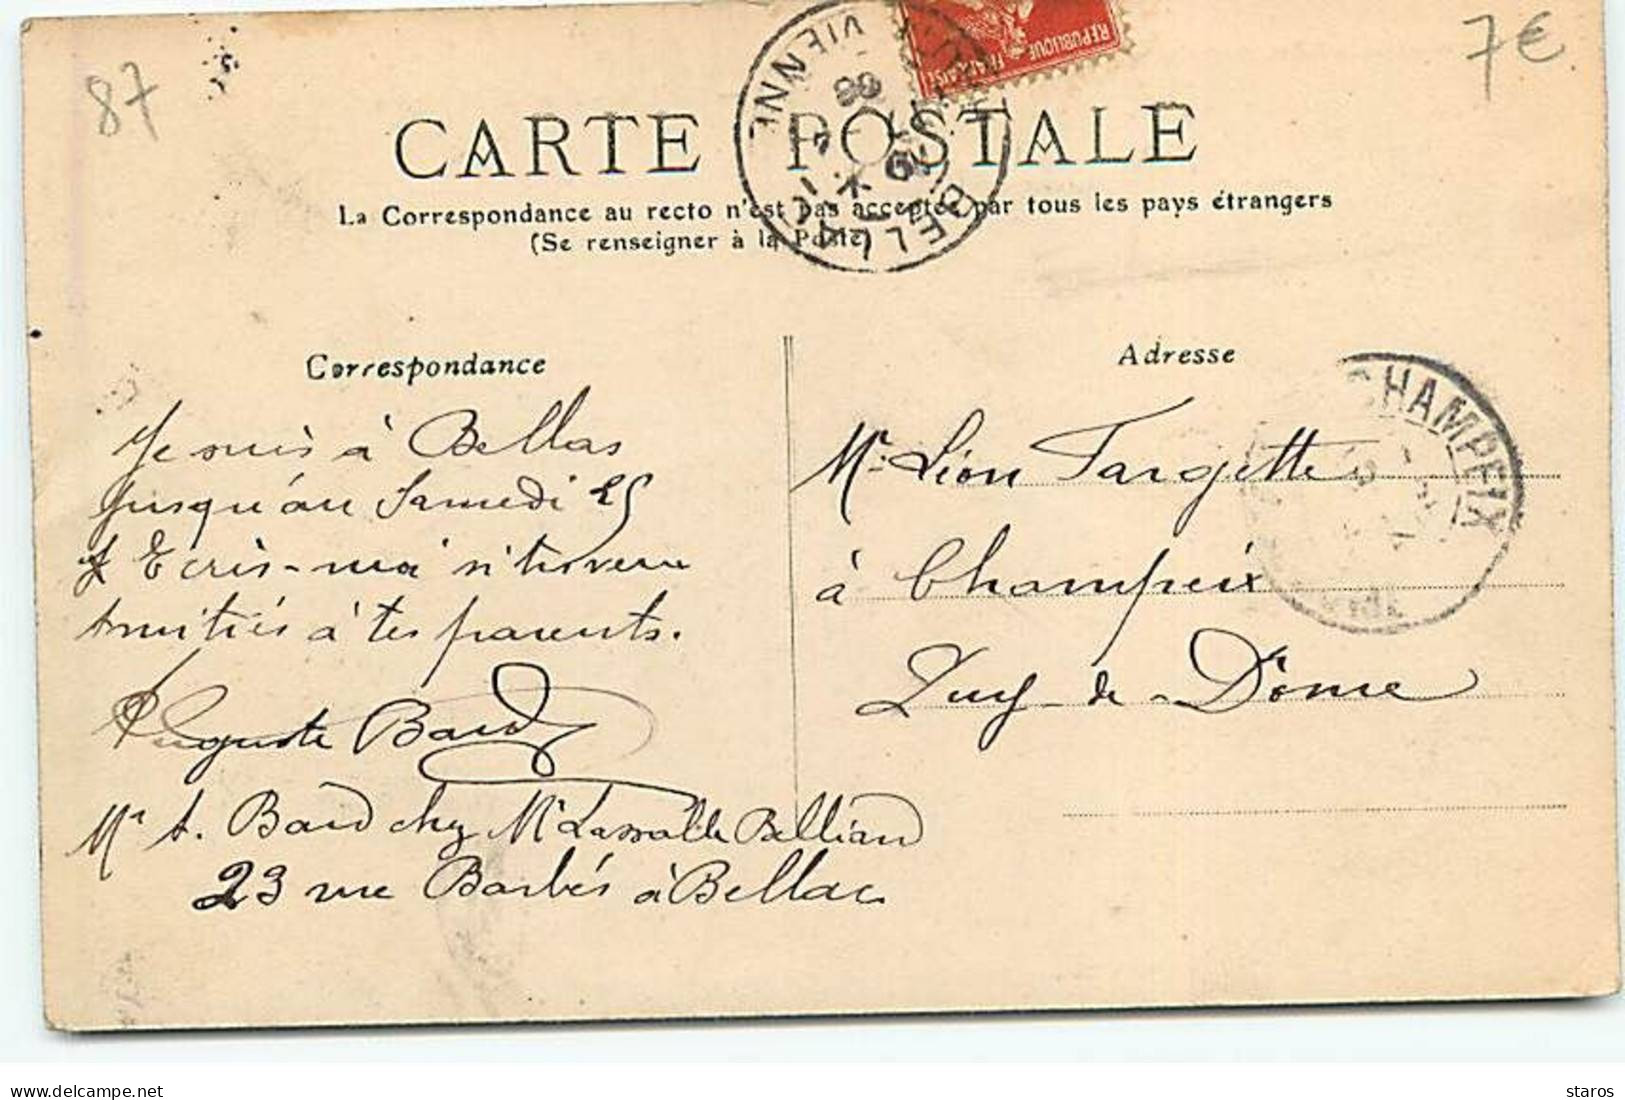 87
7€
REPUBLIQUE FRANÇAISE
BELLAC
VIENNE
08
CARTE POSTALE
La Correspondance au recto n'est pas acceptée par tous les pays étrangers
(Se renseigner à la Poste)
Correspondance
Adresse
CHAMPEIX
Je suis à Bellac
jusqu'au Samedi 25
Ecris-moi si
Amitiés à tes parents.
Auguste Baud
Mr A. Baud chez Mr Lassalle Bellian
23 rue Barbés à Bellac
Mr Léon Targette
à Champeix
Puy-de-Dôme
delcampe.net
staros